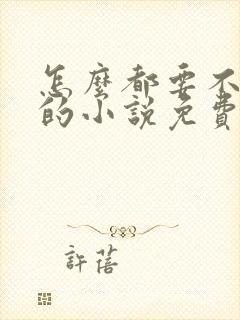 怎麼都要不
的小說免費
許蓓